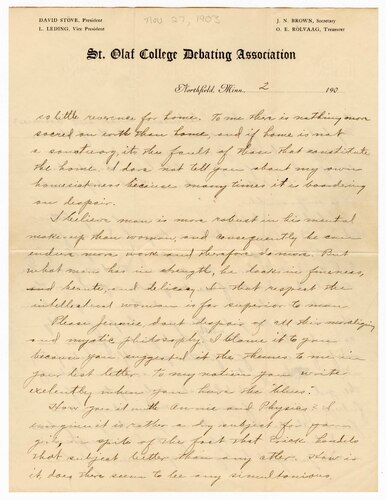 Nov 27, 1903
DAVID STÖVE, President
L. LEDING, Vice President
J. N. BROWN, Secretary
O. E. ROLVAAG, Treasurer
St. Olaf College Debating Association
Northfield, Minn. 2 190
so little reverence for home. To me ther is nothing mor
sacred on earth than home, and if home is not
a sanctuary, its the fault of those that constitute
the home. I dare not tell you about my own
homesickness because many times it is boardering
on despair.
I believe man is more robust in his mental
make-up than woman, and consequently he can
endure more work and therefore do more. But
what man has in strength, he lacks in fineness,
and beauty, and delicacy. In that respect the
intellectual woman is far superior to man.
Please Jennie dont despair of all this moralizing
and mystic philosophy. I blame it to you
because you suggested it the themes to me in
your last letter. To my notion you write
exelently when you have the "blues".
How goes it with Annie and Physics? I
imagine it is rather a dry subject for your
girls, in spite of the fact that Dick handels
that subject better than any other. How is
it, does there seem to be any simultanious